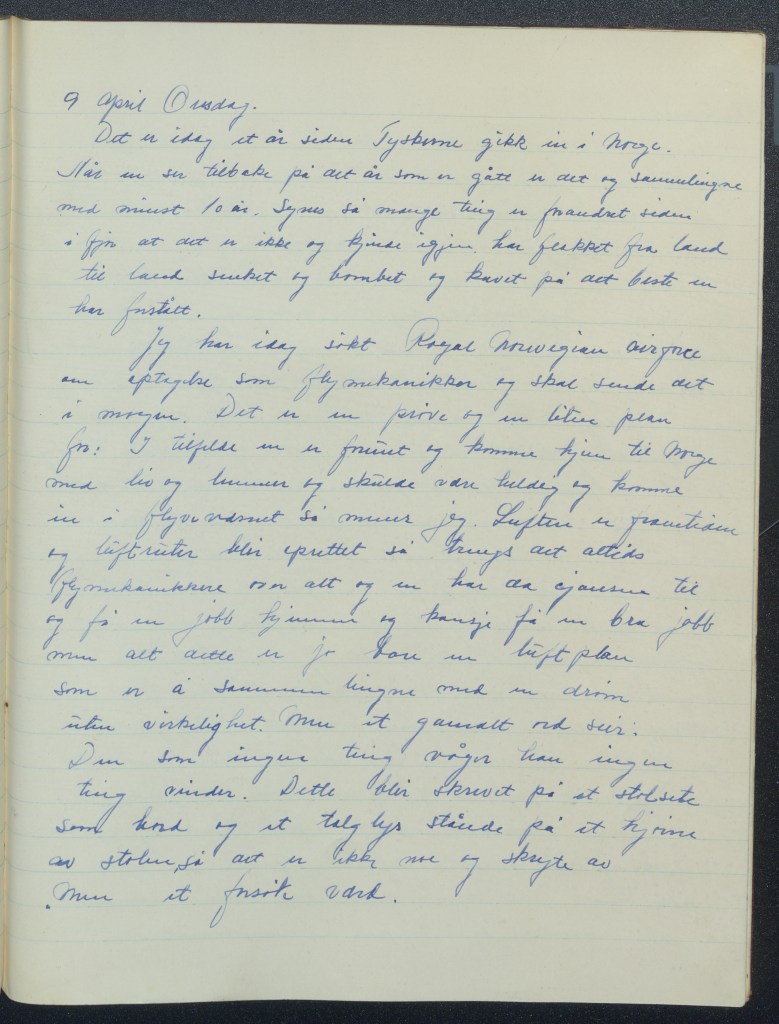 9 April Onsdag.
Det er idag et år siden Tyskerne gikk in i Norge.
Når en ser tilbake på det år som er gått er det og sammenlingne
med minst 10 år. Synes så mange ting er forandret siden
i fjor at det er ikke og kjende igjen. har flakket fra land
til land senket og bombet og kavet på det beste en
har forstått.
Jeg har idag søkt Royal Norwegian airforce
om optagelse som flymekanikker og skal sende det
i morgen. Det er en prøve og en liten plan
for: I tilfelde en er forunt og komme hjem til Norge
med liv og lemmer og skulde være heldig og komme
in i flyvevæsnet så mener jeg. Luften er framtiden
og luftruter blir oprettet så trengs det altids
flymekanikkere over alt og en har da cjansen til
og få en jobb hjemme og kansje få en bra jobb
men alt dette er jo bare en luft plan
som er å sammenlingne med en drøm
uten virkelighet. Men et gamalt ord seier:
Den som ingen ting våger han ingen
ting vinder. Dette blir skrevet på et stolsete
som bord og et talglys stående på et hjørne
av stolen, så det er ikke noe og skryte av
Men et forsøk værd.